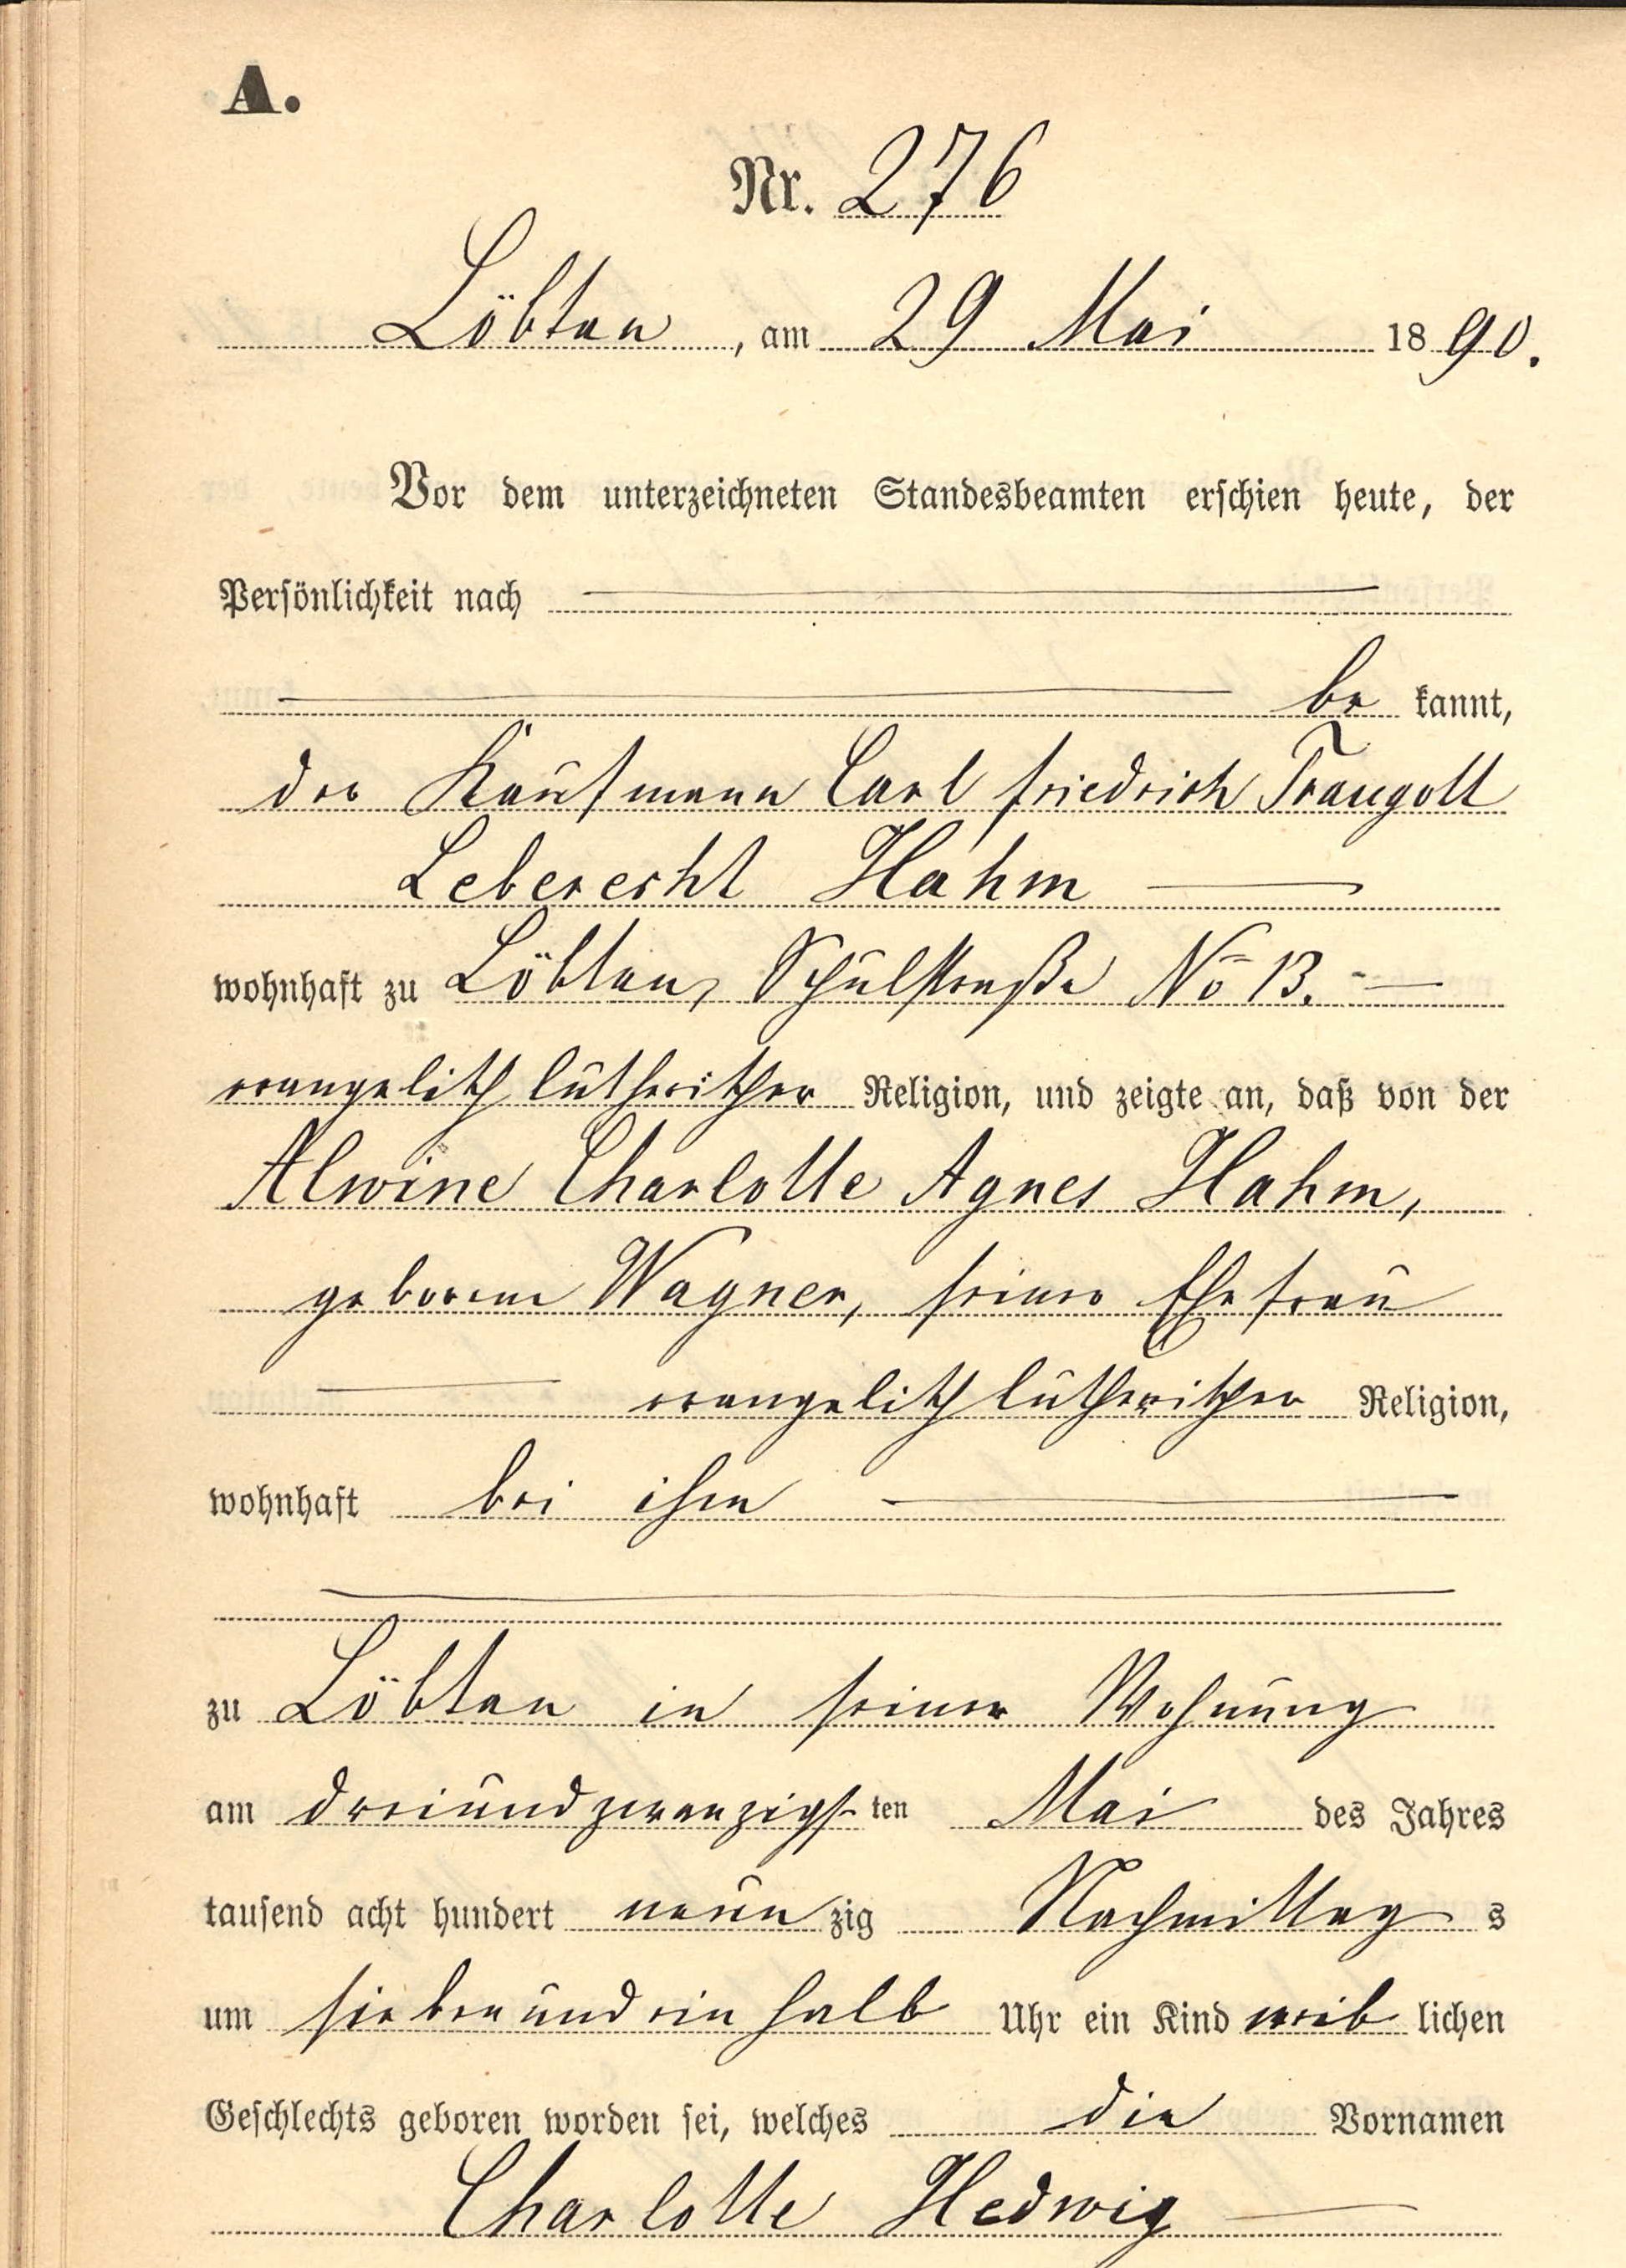 A.
Nr. 276
Löbtau, am 29 Mai 1890.
Vor dem unterzeichneten Standesbeamten erschien heute, der
Persönlichkeit nach
be kannt,
der Kaufmann Carl Friedrich Traugott
Leberecht Hahm
wohnhaft zu Löbtau, Schulstraße No 13.
evangelisch lutherischer Religion, und zeigte an, daß von der
Alwine Charlotte Agnes Hahm,
geborene Wagner, seiner Ehefrau
evangelisch lutherischer Religion,
wohnhaft bei ihm
zu Löbtau in seiner Wohnung
am dreiundzwanzigsten Mai des Jahres
tausend acht hundert neunzig Nachmittags
um sieben und ein halb Uhr ein Kind weiblichen
Geschlechts geboren worden sei, welches die Vornamen
Charlotte Hedwig